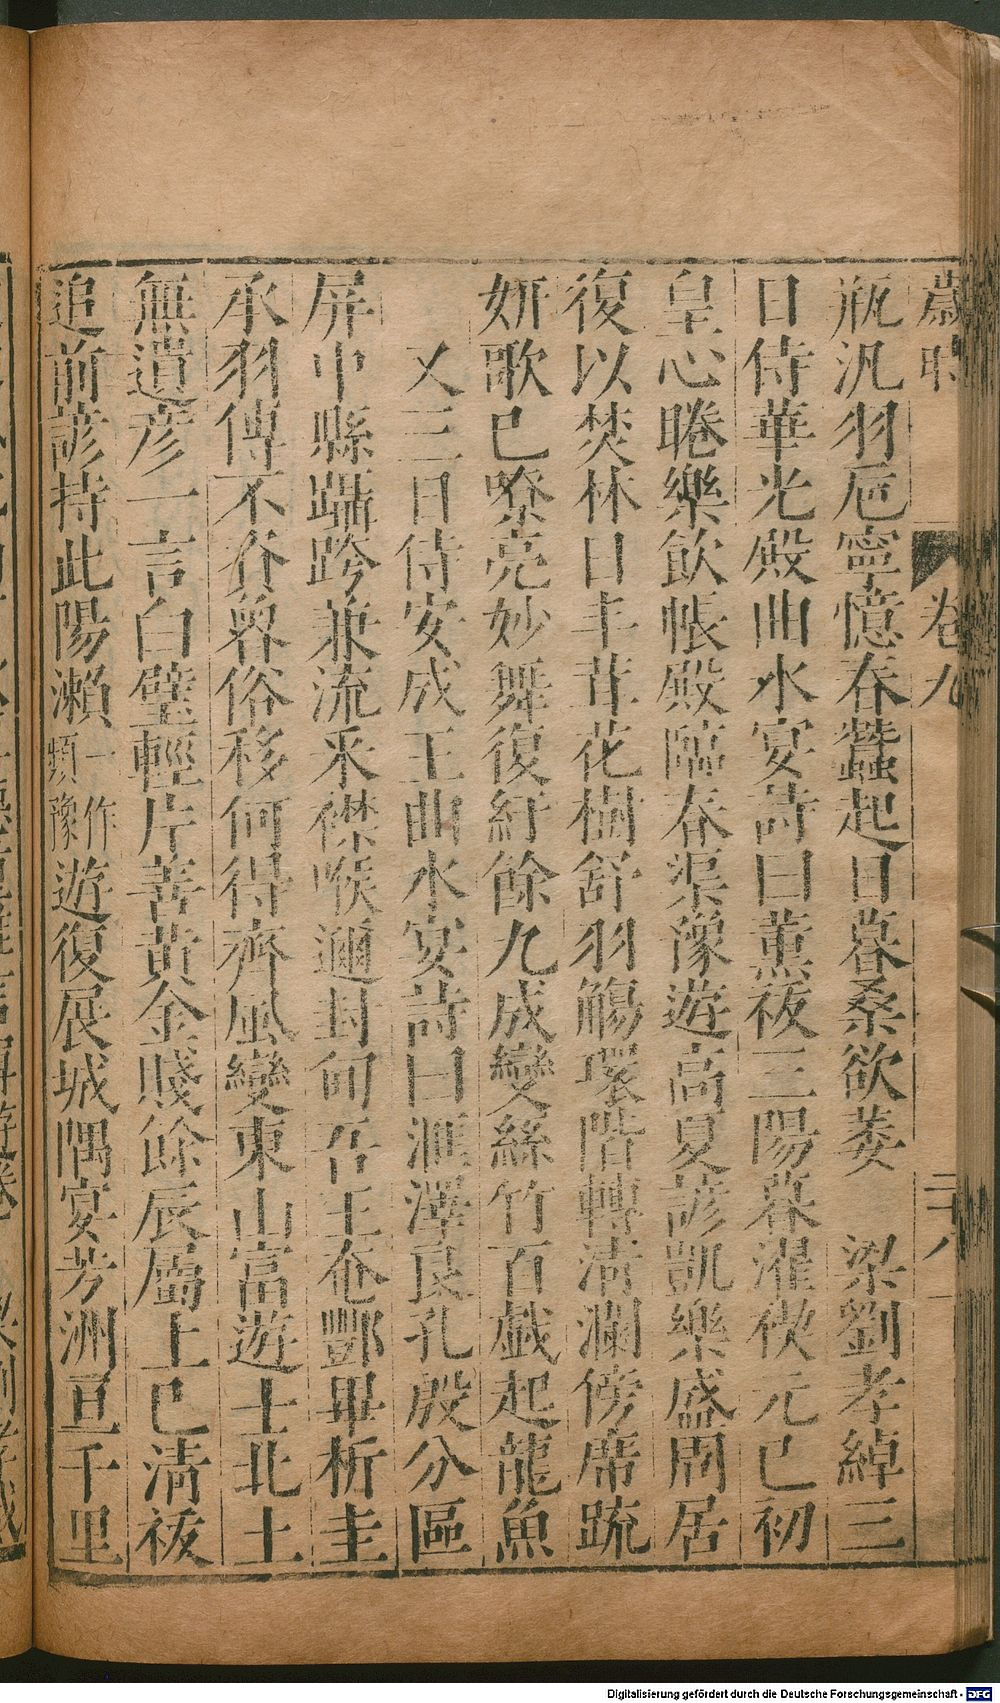 歲時 卷九 二十八
瓶汎羽巵寧憶春蠶起日暮桑欲萎 梁劉孝綽三
日侍華光殿曲水宴詩曰薰祓三陽暮濯禊元巳初
皇心睠樂飲帳殿臨春渠豫遊高夏諺凱樂盛周居
復以焚林日丰茸花樹舒羽觴環階轉清瀾傍席疏
妍歌巳嘹亮妙舞復紆餘九成變絲竹百戲起龍魚
又三日侍安成王曲水宴詩曰滙澤良孔殷分區
屏中縣躡跨兼流釆襟喉邇封甸吾王奄酆畢析圭
承羽傳不吝眾俗移何得齊風變東山富遊士北土
無遺彦一言白璧輕片善黃金賤餘辰屬上巳清祓
追前諺持此陽瀨一作頻豫遊復展城隅宴芳洲亘千里
Digitalisierung gefördert durch die Deutsche Forschungsgemeinschaft - DFG